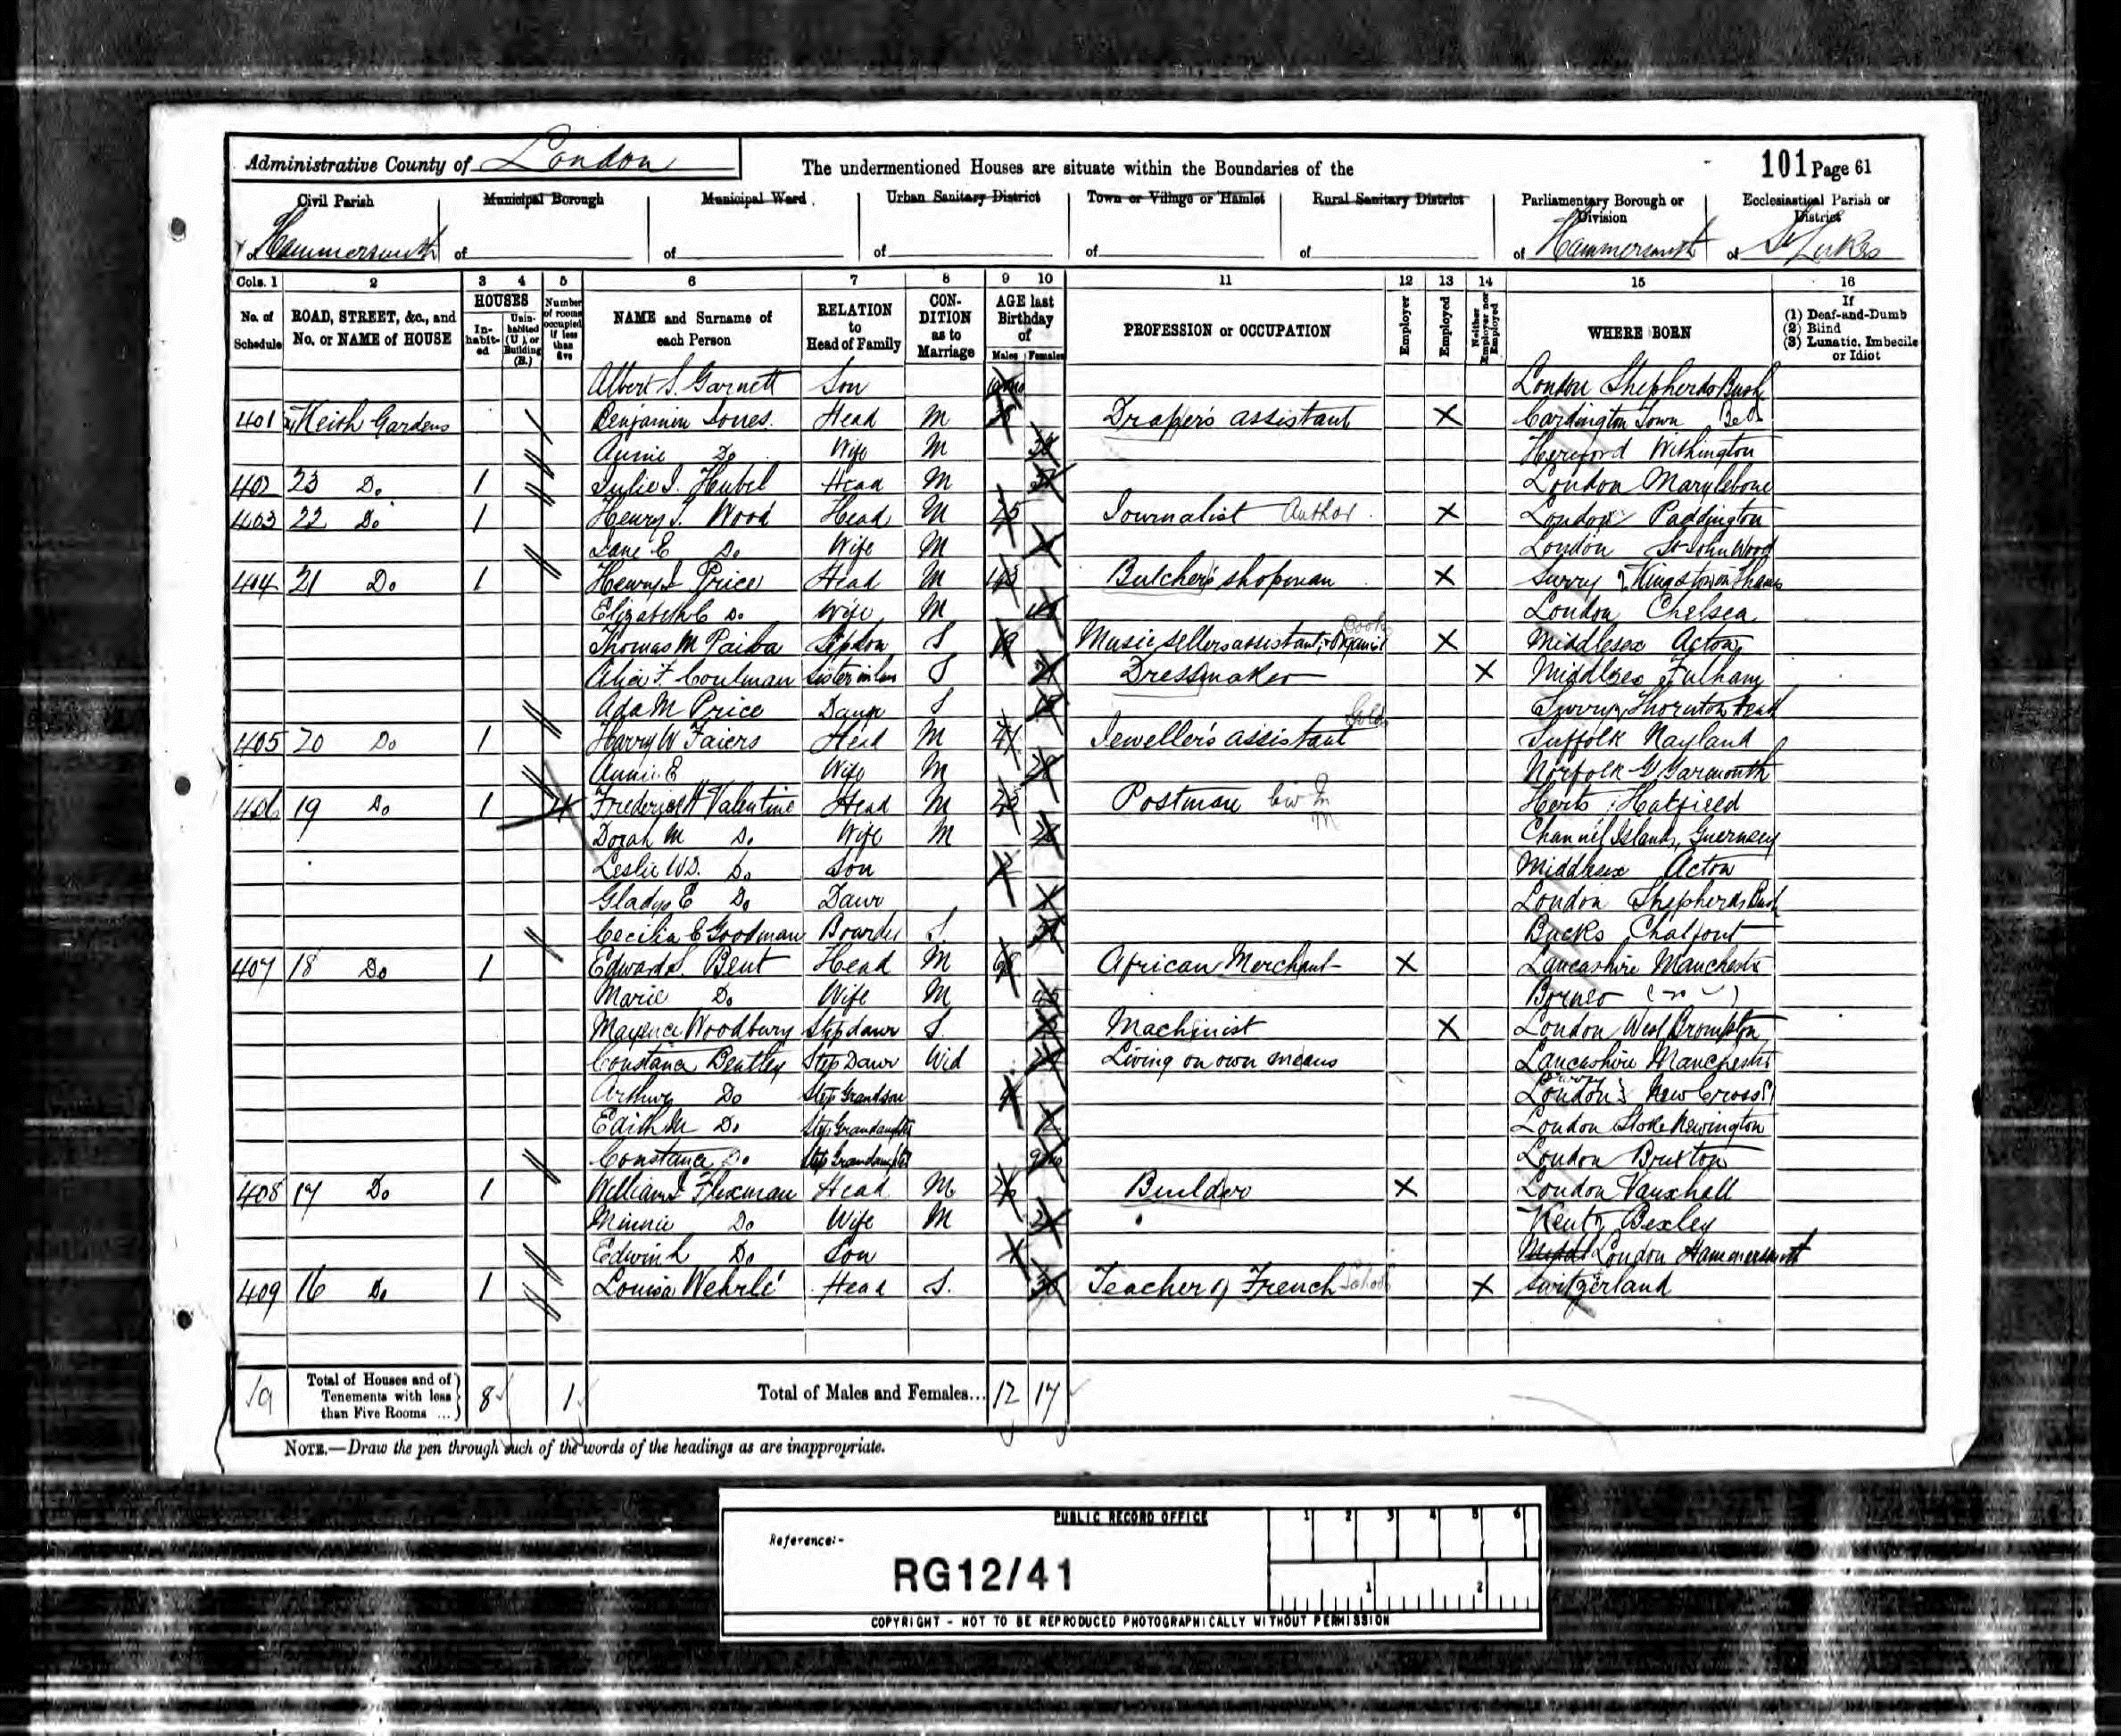 Administrative County of London
The undermentioned Houses are situate within the Boundaries of the
101 Page 61
Civil Parish
Municipal Borough
Municipal Ward
Urban Sanitary District
Town or Village or Hamlet
Rural Sanitary District
Parliamentary Borough or Division
Ecclesiastical Parish or District
of Hammersmith of of of of of of Hammersmith of St Lukes
Cols. 1 2 3 4 5 6 7 8 9 10 11 12 13 14 15 16
No. of Schedule
ROAD, STREET, &c., and No. or NAME of HOUSE
HOUSES
In-habit-ed
Unin-habited (U.), or Building (B.)
Number of rooms occupied if less than five
NAME and Surname of each Person
RELATION to Head of Family
CON-DITION as to Marriage
AGE last Birthday of
Males Females
PROFESSION or OCCUPATION
Employer
Employed
Neither Employer nor Employed
WHERE BORN
If
(1) Deaf-and-Dumb
(2) Blind
(3) Lunatic, Imbecile or Idiot
Albert S. Garnett Son London Shepherds Bush
401 Keith Gardens Benjamin Jones Head M Draper's assistant X Cardington Town
Annie Do Wife M Hereford Withington
402 23 Do 1 Julie I. Hubel Head M London Marylebone
403 22 Do 1 Henry J. Wood Head M 25 Journalist Author X London Paddington
Jane E Do Wife M London St John Wood
404 21 Do 1 Henry J Price Head M 43 Butcher's shopman X Surry Kingston on Thames
Elizabeth C Do Wife M London Chelsea
Thomas M Paiba Stepson S 19 Music sellers assistant & Organist X Middlesex Acton
Alice F. Coulman Sister in law S Dressmaker X Middlesex Fulham
Ada M Price Daur S Surry Thornton Heath
405 20 Do 1 Harry W Faiers Head M 41 Jeweller's assistant Gold Suffolk Nayland
Annie E Wife M Norfolk G Yarmouth
406 19 Do 1 4 Frederick H Valentine Head M Postman Herts Hatfield
Dorah M Do Wife M Channel Islands, Guernsey
Leslie W D. Do Son Middlesex Acton
Gladys E Do Daur London Shepherds Bush
Cecilia E Goodman Boarder S. Bucks Chalfont
407 18 Do 1 Edward S. Bent Head M African Merchant X Lancashire Manchester
Marie Do Wife M Borneo
Woodbury Stepdaur S. Machinist X London West Brompton
Constance Bentley Step Daur Wid Living on own means Lancashire Manchester
Arthur Do Step Grandson London New Cross
Edith M Do Step Grandaughter London Stoke Newington
Constance Do Step Grandaughter London Brixton
408 17 Do 1 William J Flexman Head M 26 Builder X London Vauxhall
Minnie Do Wife M Kent Bexley
Edwin L Do Son London Hammersmith
409 16 Do 1 Louisa Wehrlé Head S. Teacher of French School X Switzerland
19 Total of Houses and of Tenements with less than Five Rooms ... 8 1 Total of Males and Females... 12 17
NOTE.—Draw the pen through such of the words of the headings as are inappropriate.
PUBLIC RECORD OFFICE
1 2 3 4 5 6
Reference:-
RG12/41
1 2
COPYRIGHT - NOT TO BE REPRODUCED PHOTOGRAPHICALLY WITHOUT PERMISSION